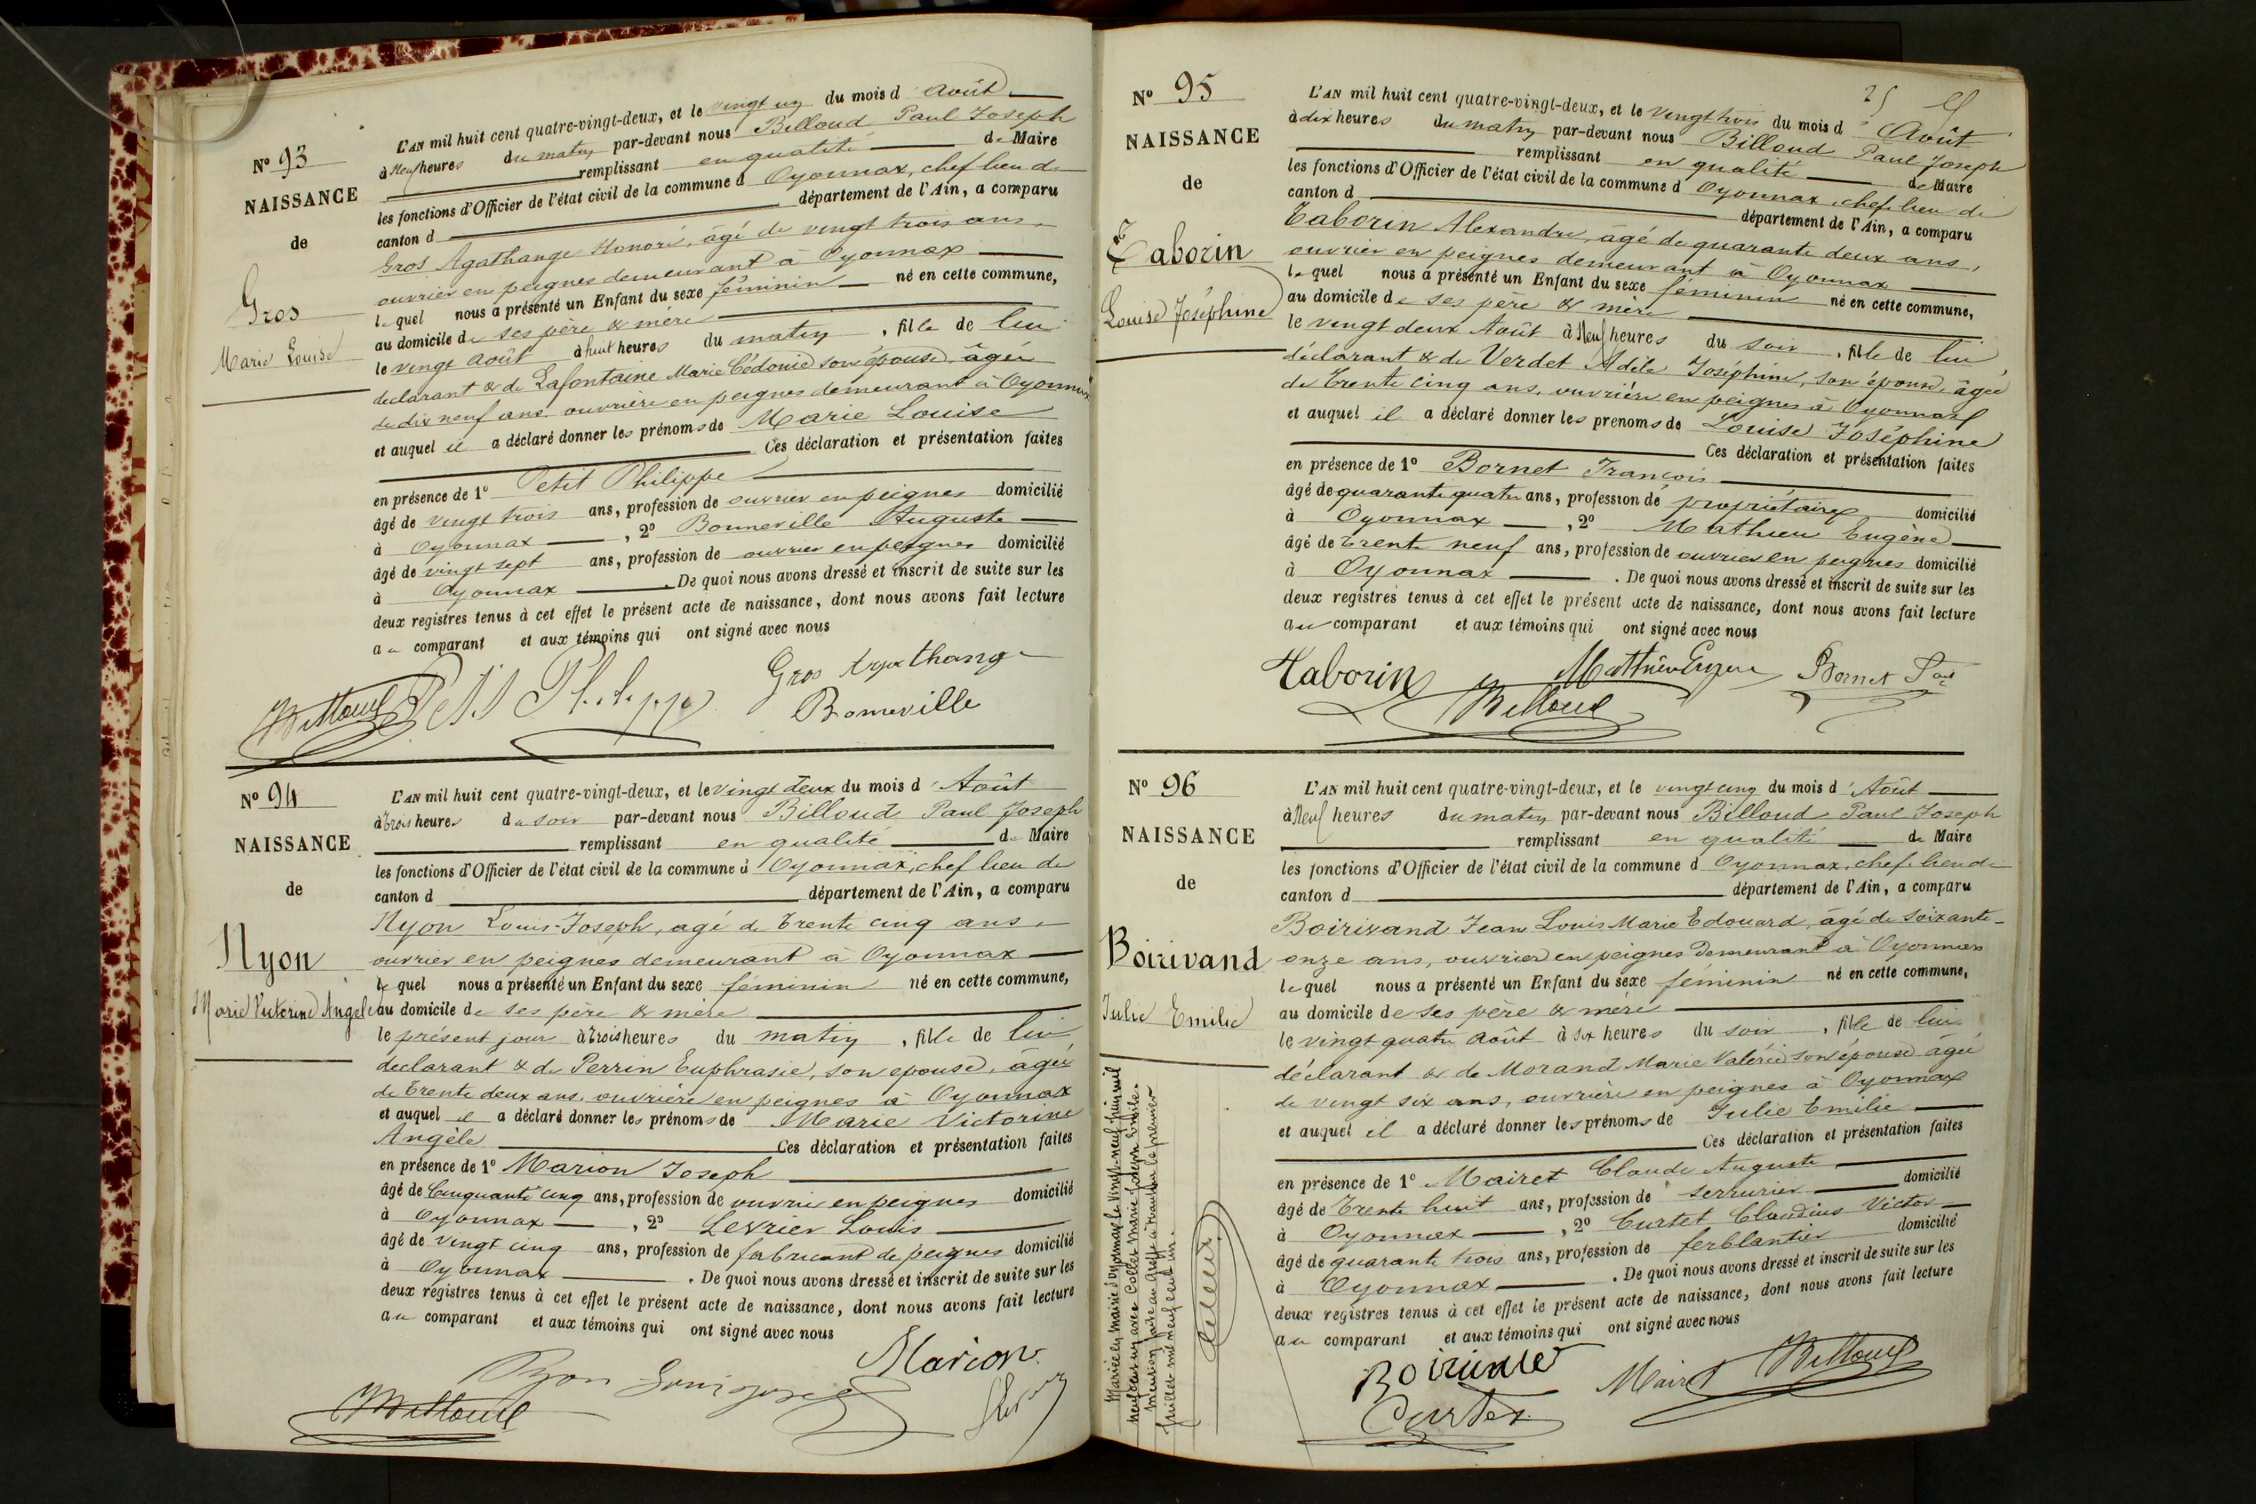 N° 93
NAISSANCE
de
Gros
Marie Louise
L'AN mil huit cent quatre-vingt-deux, et le vingt un du mois d'Août
à Neuf heures du matin par-devant nous Billoud Paul Joseph
remplissant en qualité de Maire
les fonctions d'Officier de l'état civil de la commune d'Oyonnax, chef lieu de
canton d département de l'Ain, a comparu
Gros Agathange Honoré, âgé de vingt trois ans,
ouvrier en peignes demeurant à Oyonnax
lequel nous a présenté un Enfant du sexe féminin né en cette commune,
au domicile de ses père & mère
le vingt Août à huit heures du matin, fille de lui
déclarant & de Lafontaine Marie Cédonie son épouse, âgée
de dix neuf ans ouvrière en peignes demeurant à Oyonnax
et auquel il a déclaré donner les prénoms de Marie Louise
Ces déclaration et présentation faites
en présence de 1° Petit Philippe
âgé de vingt trois ans, profession de ouvrier en peignes domicilié
à Oyonnax, 2° Bonneville Auguste
âgé de vingt sept ans, profession de ouvrier en peignes domicilié
à Oyonnax. De quoi nous avons dressé et inscrit de suite sur les
deux registres tenus à cet effet le présent acte de naissance, dont nous avons fait lecture
au comparant et aux témoins qui ont signé avec nous
Gros Agathange
Billoud Petit Philippe Bonneville
N° 94
NAISSANCE
de
Nyon
Marie Victorine Angele
L'AN mil huit cent quatre-vingt-deux, et le vingt deux du mois d'Août
à Trois heures du soir par-devant nous Billoud Paul Joseph
remplissant en qualité de Maire
les fonctions d'Officier de l'état civil de la commune d'Oyonnax, chef lieu de
canton d département de l'Ain, a comparu
Nyon Louis-Joseph, agé de Trente cinq ans,
ouvrier en peignes demeurant à Oyonnax
lequel nous a présenté un Enfant du sexe féminin né en cette commune,
au domicile de ses père & mère
le présent jour à Trois heures du matin, fille de lui
déclarant & de Perrin Euphrasie, son epouse, âgée
de Trente deux ans, ouvrière en peignes à Oyonnax
et auquel il a déclaré donner les prénoms de Marie Victorine
Angèle Ces déclaration et présentation faites
en présence de 1° Marion Joseph
âgé de Cinquante cinq ans, profession de ouvrier en peignes domicilié
à Oyonnax, 2° Levrier Louis
âgé de vingt cinq ans, profession de fabricant de peignes domicilié
à Oyonnax. De quoi nous avons dressé et inscrit de suite sur les
deux registres tenus à cet effet le présent acte de naissance, dont nous avons fait lecture
au comparant et aux témoins qui ont signé avec nous
Marion
Nyon Louis Joseph
Billoud
25
N° 95
NAISSANCE
de
Taborin
Louise Joséphine
L'AN mil huit cent quatre-vingt-deux, et le vingt trois du mois d'Août
à dix heures du matin par-devant nous Billoud Paul Joseph
remplissant en qualité de Maire
les fonctions d'Officier de l'état civil de la commune d'Oyonnax chef lieu de
canton d département de l'Ain, a comparu
Taborin Alexandre, âgé de quarante deux ans,
ouvrier en peignes demeurant à Oyonnax
lequel nous a présenté un Enfant du sexe féminin né en cette commune,
au domicile de ses père & mère
le vingt deux Août à Neuf heures du soir, fille de lui
déclarant & de Verdet Adèle Joséphine, son épouse, âgée
de Trente cinq ans, ouvrière en peignes à Oyonnax
et auquel il a déclaré donner les prenoms de Louise Joséphine
Ces déclaration et présentation faites
en présence de 1° Bornet François
âgé de quarante quatre ans, profession de propriétaire domicilié
à Oyonnax, 2° Mathieu Eugène
âgé de Trente neuf ans, profession de ouvrier en peignes domicilié
à Oyonnax. De quoi nous avons dressé et inscrit de suite sur les
deux registres tenus à cet effet le présent acte de naissance, dont nous avons fait lecture
au comparant et aux témoins qui ont signé avec nous
Taborin Mathieu Eugene Bornet
Billoud
N° 96
NAISSANCE
de
Boirivand
Julie Emilie
Mariée en mairie d'Oyonnax le vingt-neuf juin mil
neuf cent un avec Collet Marie Joseph Emile.
Mention faite au Greffe à Nantua le premier
Juillet mil neuf cent un.
L'AN mil huit cent quatre-vingt-deux, et le vingt cinq du mois d'Août
à Neuf heures du matin par-devant nous Billoud Paul Joseph
remplissant en qualité de Maire
les fonctions d'Officier de l'état civil de la commune d Oyonnax, chef-lieu de
canton d département de l'Ain, a comparu
Boirivand Jean Louis Marie Edouard, âgé de soixante-
onze ans, ouvrier en peignes demeurant à Oyonnax
lequel nous a présenté un Enfant du sexe féminin né en cette commune,
au domicile de ses père & mère
le vingt quatre Août à six heures du soir, fille de lui
déclarant & de Morand Marie Valérie son épouse âgée
de vingt six ans, ouvrière en peignes à Oyonnax
et auquel il a déclaré donner les prénoms de Julie Emilie
Ces déclaration et présentation faites
en présence de 1° Mairet Claude Auguste
âgé de Trente huit ans, profession de serrurier domicilié
à Oyonnax, 2° Curtet Claudius Victor
âgé de quarante trois ans, profession de ferblantier domicilié
à Oyonnax. De quoi nous avons dressé et inscrit de suite sur les
deux registres tenus à cet effet le présent acte de naissance, dont nous avons fait lecture
au comparant et aux témoins qui ont signé avec nous
Mairet Billoud
Curtet